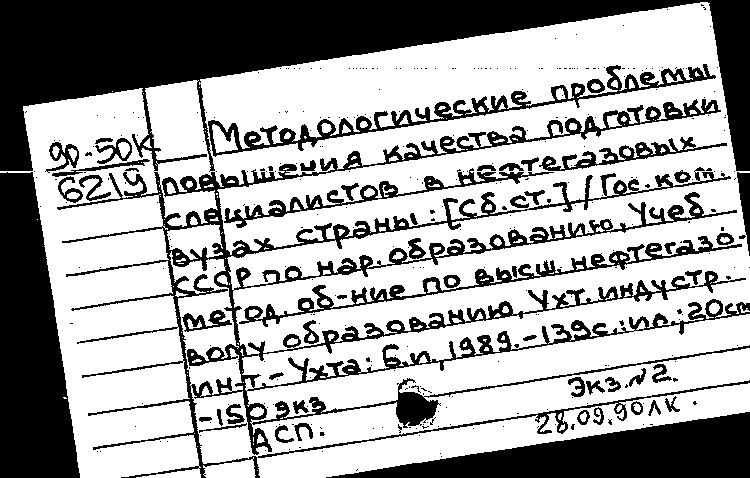 Методологические проблемы
90-50К повышения качества подготовки
6219 специалистов в нефтегазовых
вузах страны: [Сб.ст.] / Гос.ком.
СССР по нар. образованию, Учеб.
метод. об-ние по высш. нефтегазо-
вому образованию, Ухт. индустр.
ин-т. - Ухта: Б.и., 1989. - 139с.: ил.; 20см
-150экз. Экз.№2.
АСП. 28.09.90ЛК.